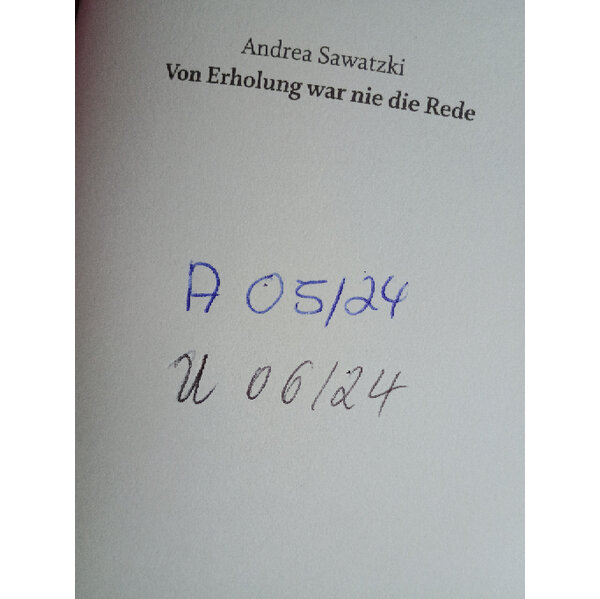 Andrea Sawatzki
Von Erholung war nie die Rede
A 05/24
U 06/24